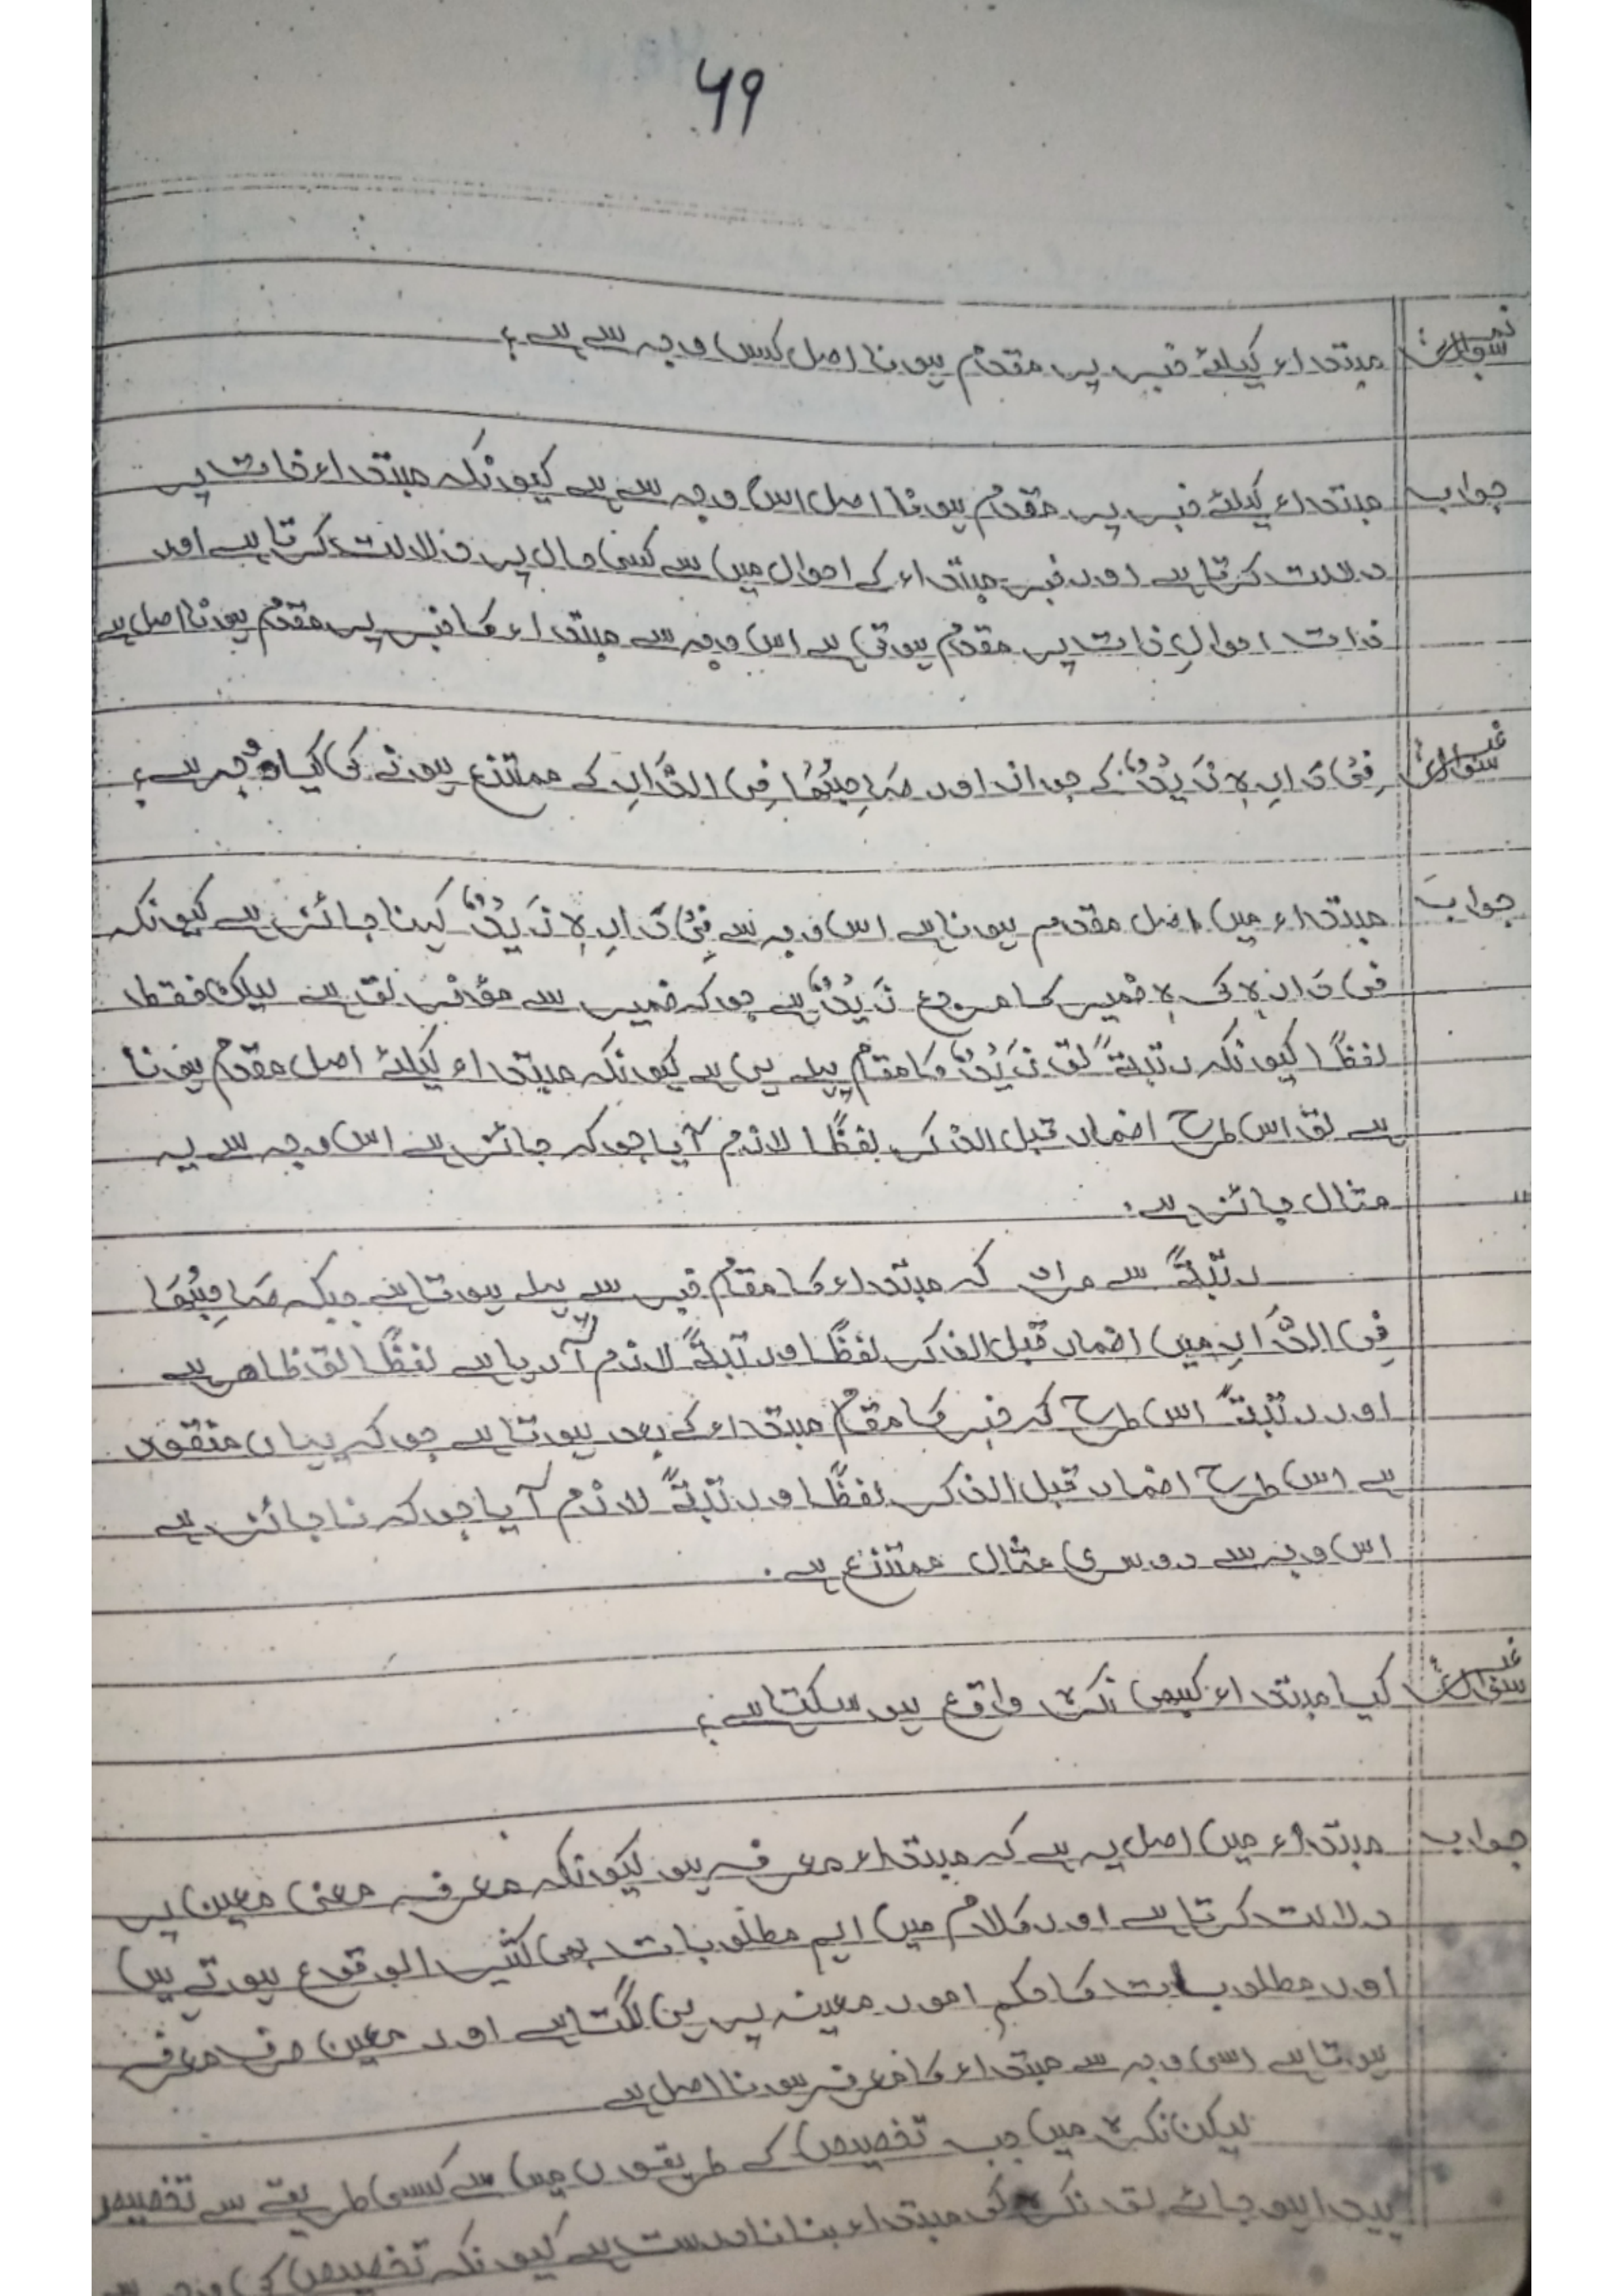 ۶۹
سوال نمبر مبتداء کیلئے خبر پر مقدم ہونا اصل کس وجہ سے ہے؟
جواب مبتداء کیلئے خبر پر مقدم ہونا اصل اس وجہ سے ہے کیونکہ مبتداء ذات پر
دلالت کرتا ہے اور خبر مبتداء کے احوال میں سے کسی حال پر دلالت کرتا ہے اور
ذات احوالِ ذات پر مقدم ہوتی ہے اس وجہ سے مبتداء کا خبر پر مقدم ہونا اصل ہے
سوال نمبر فِیْ دَارِہٖ زَیْدٌ کے جواز اور صَاحِبُھَا فِی الدَّارِ کے ممتنع ہونے کی کیا وجہ ہے؟
جواب مبتداء میں اصل مقدم ہونا ہے اس وجہ سے فِیْ دَارِہٖ زَیْدٌ کہنا جائز ہے کیونکہ
فی دارہ کی ہ ضمیر کا مرجع زَیْدٌ ہے جو کہ ضمیر سے مؤخر تو ہے لیکن فقط
لفظًا کیونکہ رتبۃً تو زَیْدٌ کا مقام پہلے ہی ہے کیونکہ مبتداء کیلئے اصل مقدم ہونا
ہے تو اس طرح اضمار قبل الذکر لفظًا لازم آیا جو کہ جائز ہے اس وجہ سے یہ
مثال جائز ہے۔
رتبۃً سے مراد کہ مبتداء کا مقام خبر سے پہلے ہوتا ہے جبکہ صَاحِبُھَا
فِی الدَّارِ میں اضمار قبل الذکر لفظًا اور رتبۃً لازم آ رہا ہے لفظًا تو ظاہر ہے
اور رتبۃً اس طرح کہ خبر کا مقام مبتداء کے بعد ہوتا ہے جو کہ یہاں مفقود
ہے اس طرح اضمار قبل الذکر لفظًا اور رتبۃً لازم آیا جو کہ نا جائز ہے
اس وجہ سے دوسری مثال ممتنع ہے۔
سوال نمبر کیا مبتداء کبھی نکرہ واقع ہو سکتا ہے؟
جواب مبتداء میں اصل یہ ہے کہ مبتداء معرفہ ہو کیونکہ معرفہ معنی معین پر
دلالت کرتا ہے اور کلام میں اہم مطلوبات بھی کثیر الوقوع ہوتے ہیں
اور مطلوبات کا حکم امور معینہ پر ہی لگتا ہے اور معین صرف معرفہ
ہوتا ہے اسی وجہ سے مبتداء کا معرفہ ہونا اصل ہے
لیکن نکرہ میں جب تخصیص کے طریقوں میں سے کسی طریقے سے تخصیص
پیدا ہو جائے تو نکرہ کو مبتداء بنانا درست ہے کیونکہ تخصیص کی وجہ سے